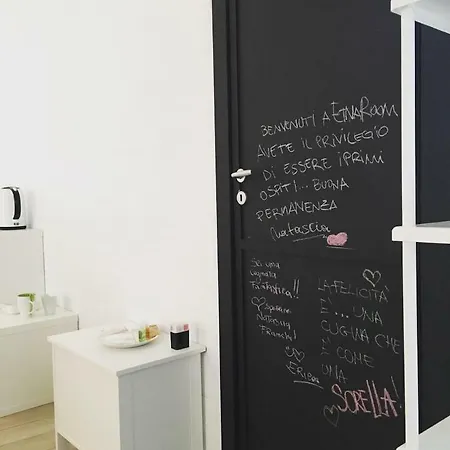 BENVENUTI A ETNAROOM
AVETE IL PRIVILEGIO
DI ESSERE I PRIMI
OSPITI... BUONA
PERMANENZA
Natascia
Sei una
cognata
Fantastica!!
Natascia
LA FELICITÀ
È... UNA
CUGINA CHE
È COME
UNA
SORELLA!